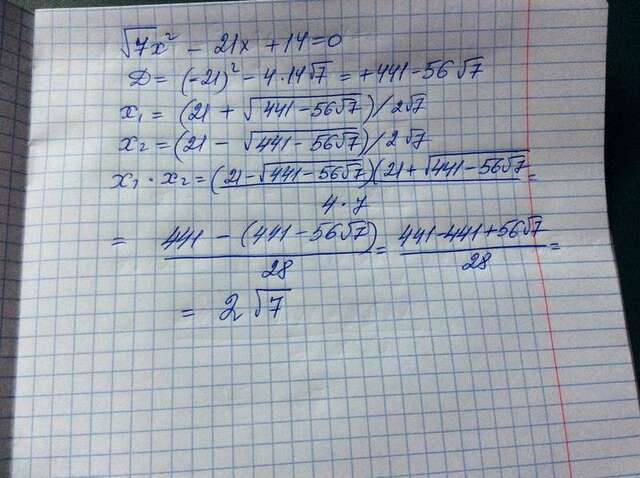 √7x² - 21x + 14 = 0
D = (-21)² - 4·14√7 = +441-56√7
x₁ = (21 + √441-56√7)/2√7
x₂ = (21 - √441-56√7)/2√7
x₁·x₂ = (21-√441-56√7)(21+√441-56√7) =
4·7
= 441 - (441-56√7) = 441-441+56√7 =
28 28
= 2√7